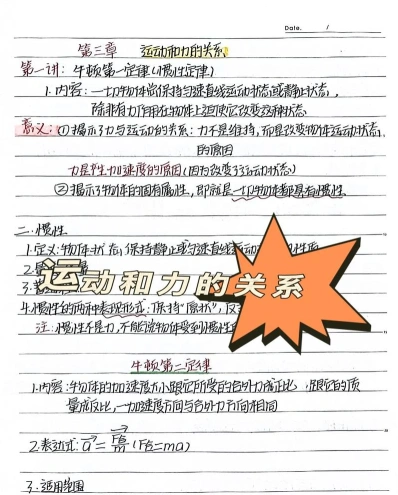 Date. /
第三章 运动和力的关系
第一讲：牛顿第一定律(惯性定律)
1.内容：一切物体尚保持匀速直线运动状态或静止状态，
除非有力作用在物体上迫使它改变这种状态
意义：①揭示了力与运动的关系：力不是维持，而是改变物体运动状态，
的原因
力是产生加速度的原因(因为改变了运动状态)
②揭示了物体的固有属性，即就是一切物体都具有惯性
二.惯性
1.定义：物体 保持静止或匀速直线运动
2.
3.
运动和力的关系
4.惯性的两种表现形式：保持“原状”，反
注：惯性不是力，不能说物体受到惯性
牛顿第二定律
1.内容：物体的加速度大小跟它所受的合外力成正比，跟它的质
量成反比，加速度方向与合外力方向相同
2.表达式：a=F合/m (F合=ma)
3.适用范围